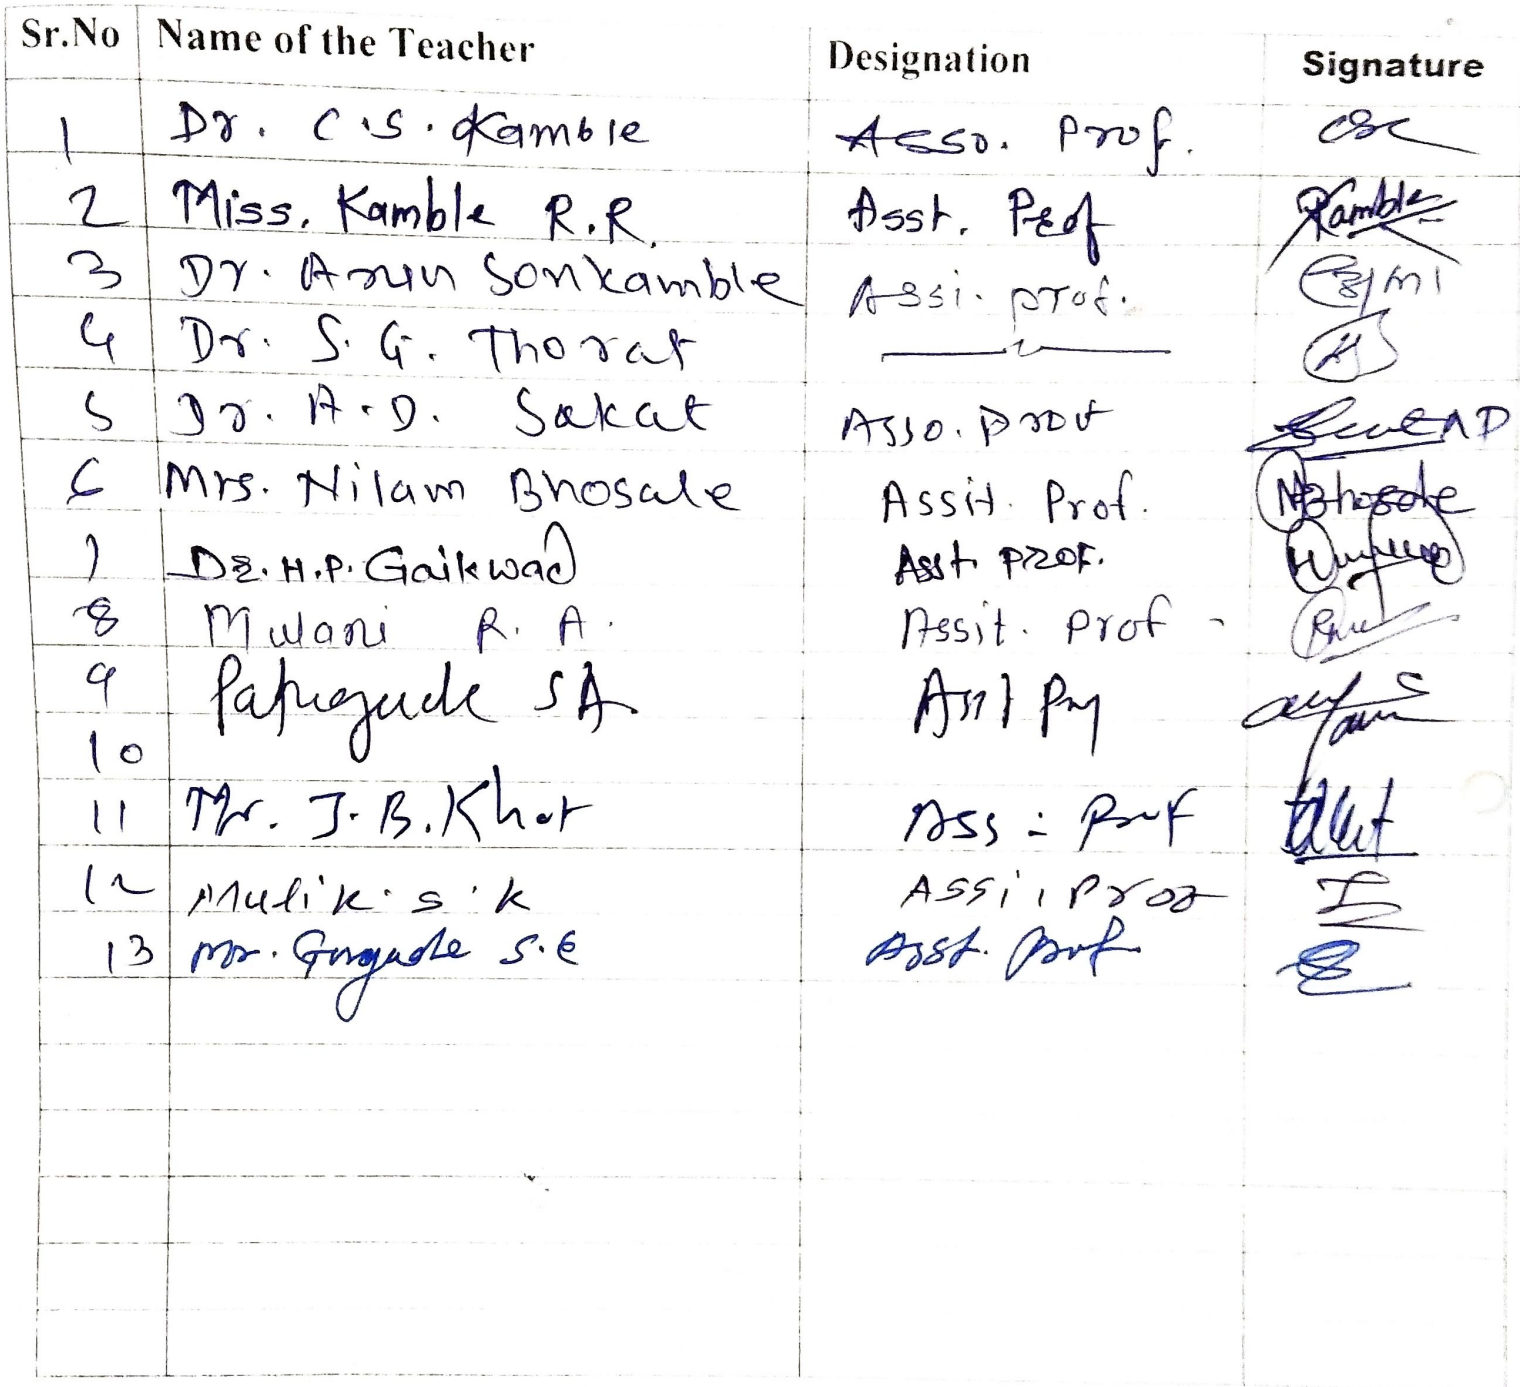 Sr.No Name of the Teacher Designation Signature
1 Dr. C.S. Kamble Asso. Prof. CSK
2 Miss. Kamble R.R. Asst. Prof Kamble
3 Dr. Arun Sonkamble Assi. prof.
4 Dr. S. G. Thorat
5 Dr. A.D. Sakat Asso. prof
6 Mrs. Nilam Bhosale Assit. Prof. NBhosale
7 Dr. H.P. Gaikwad Asst. Prof.
8 Mulani R. A. Assit. Prof
9 SA
10
11 Mr. J. B. Khot Ass - Prof
12 Mulik. S. K Assi. Prof
13 Mr. S.E Asst. prof.